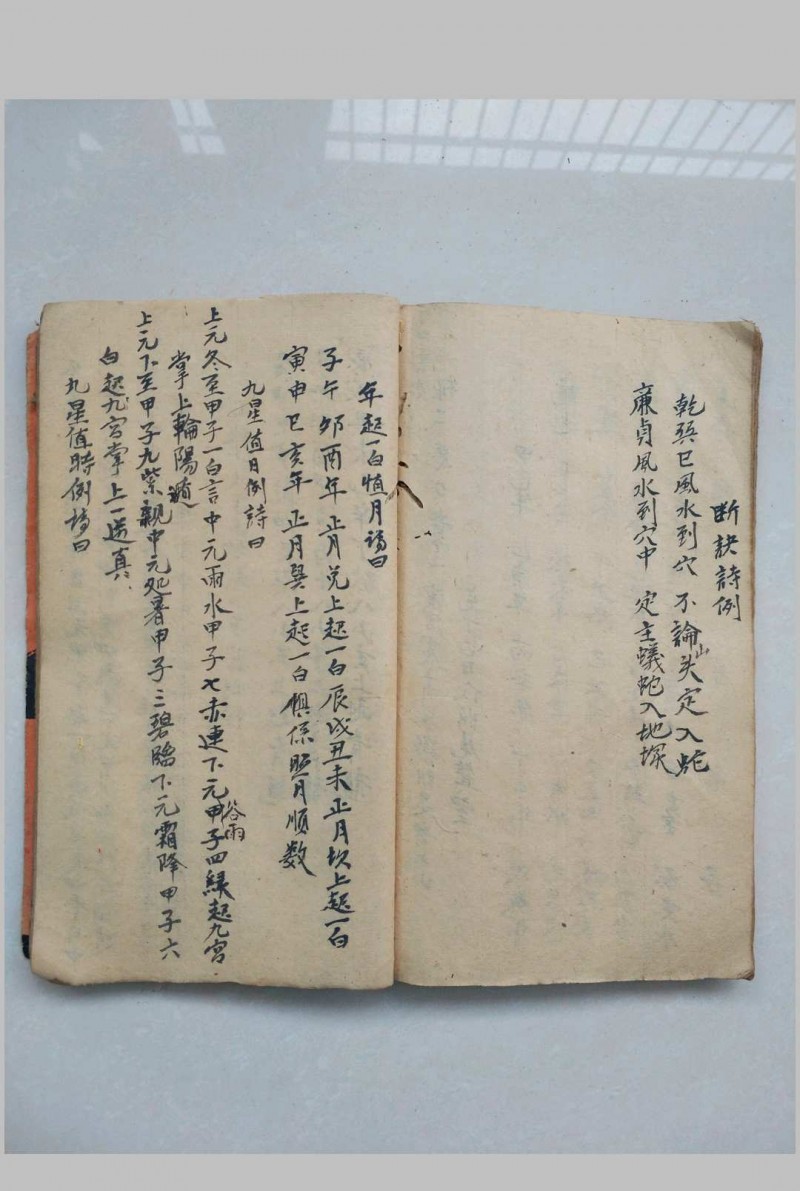 断訣詩例
乾巽巳風水到穴 不論山头定入蛇
廉貞風水到穴中 定主蟻蛇入地塚
年起一白值月诗曰
子午卯酉年 正月兑上起一白 辰戌丑未正月坎上起一白
寅申巳亥年 正月巽上起一白 俱係照月順数
九星值日例詩曰
上元冬至甲子一白言 中元雨水甲子七赤連 下元谷雨甲子四緑起九宮
掌上輪陽遁
上元下至甲子九紫親 中元処暑甲子三碧臨 下元霜降甲子六
白起九宮掌上一逆真
九星值時例诗曰